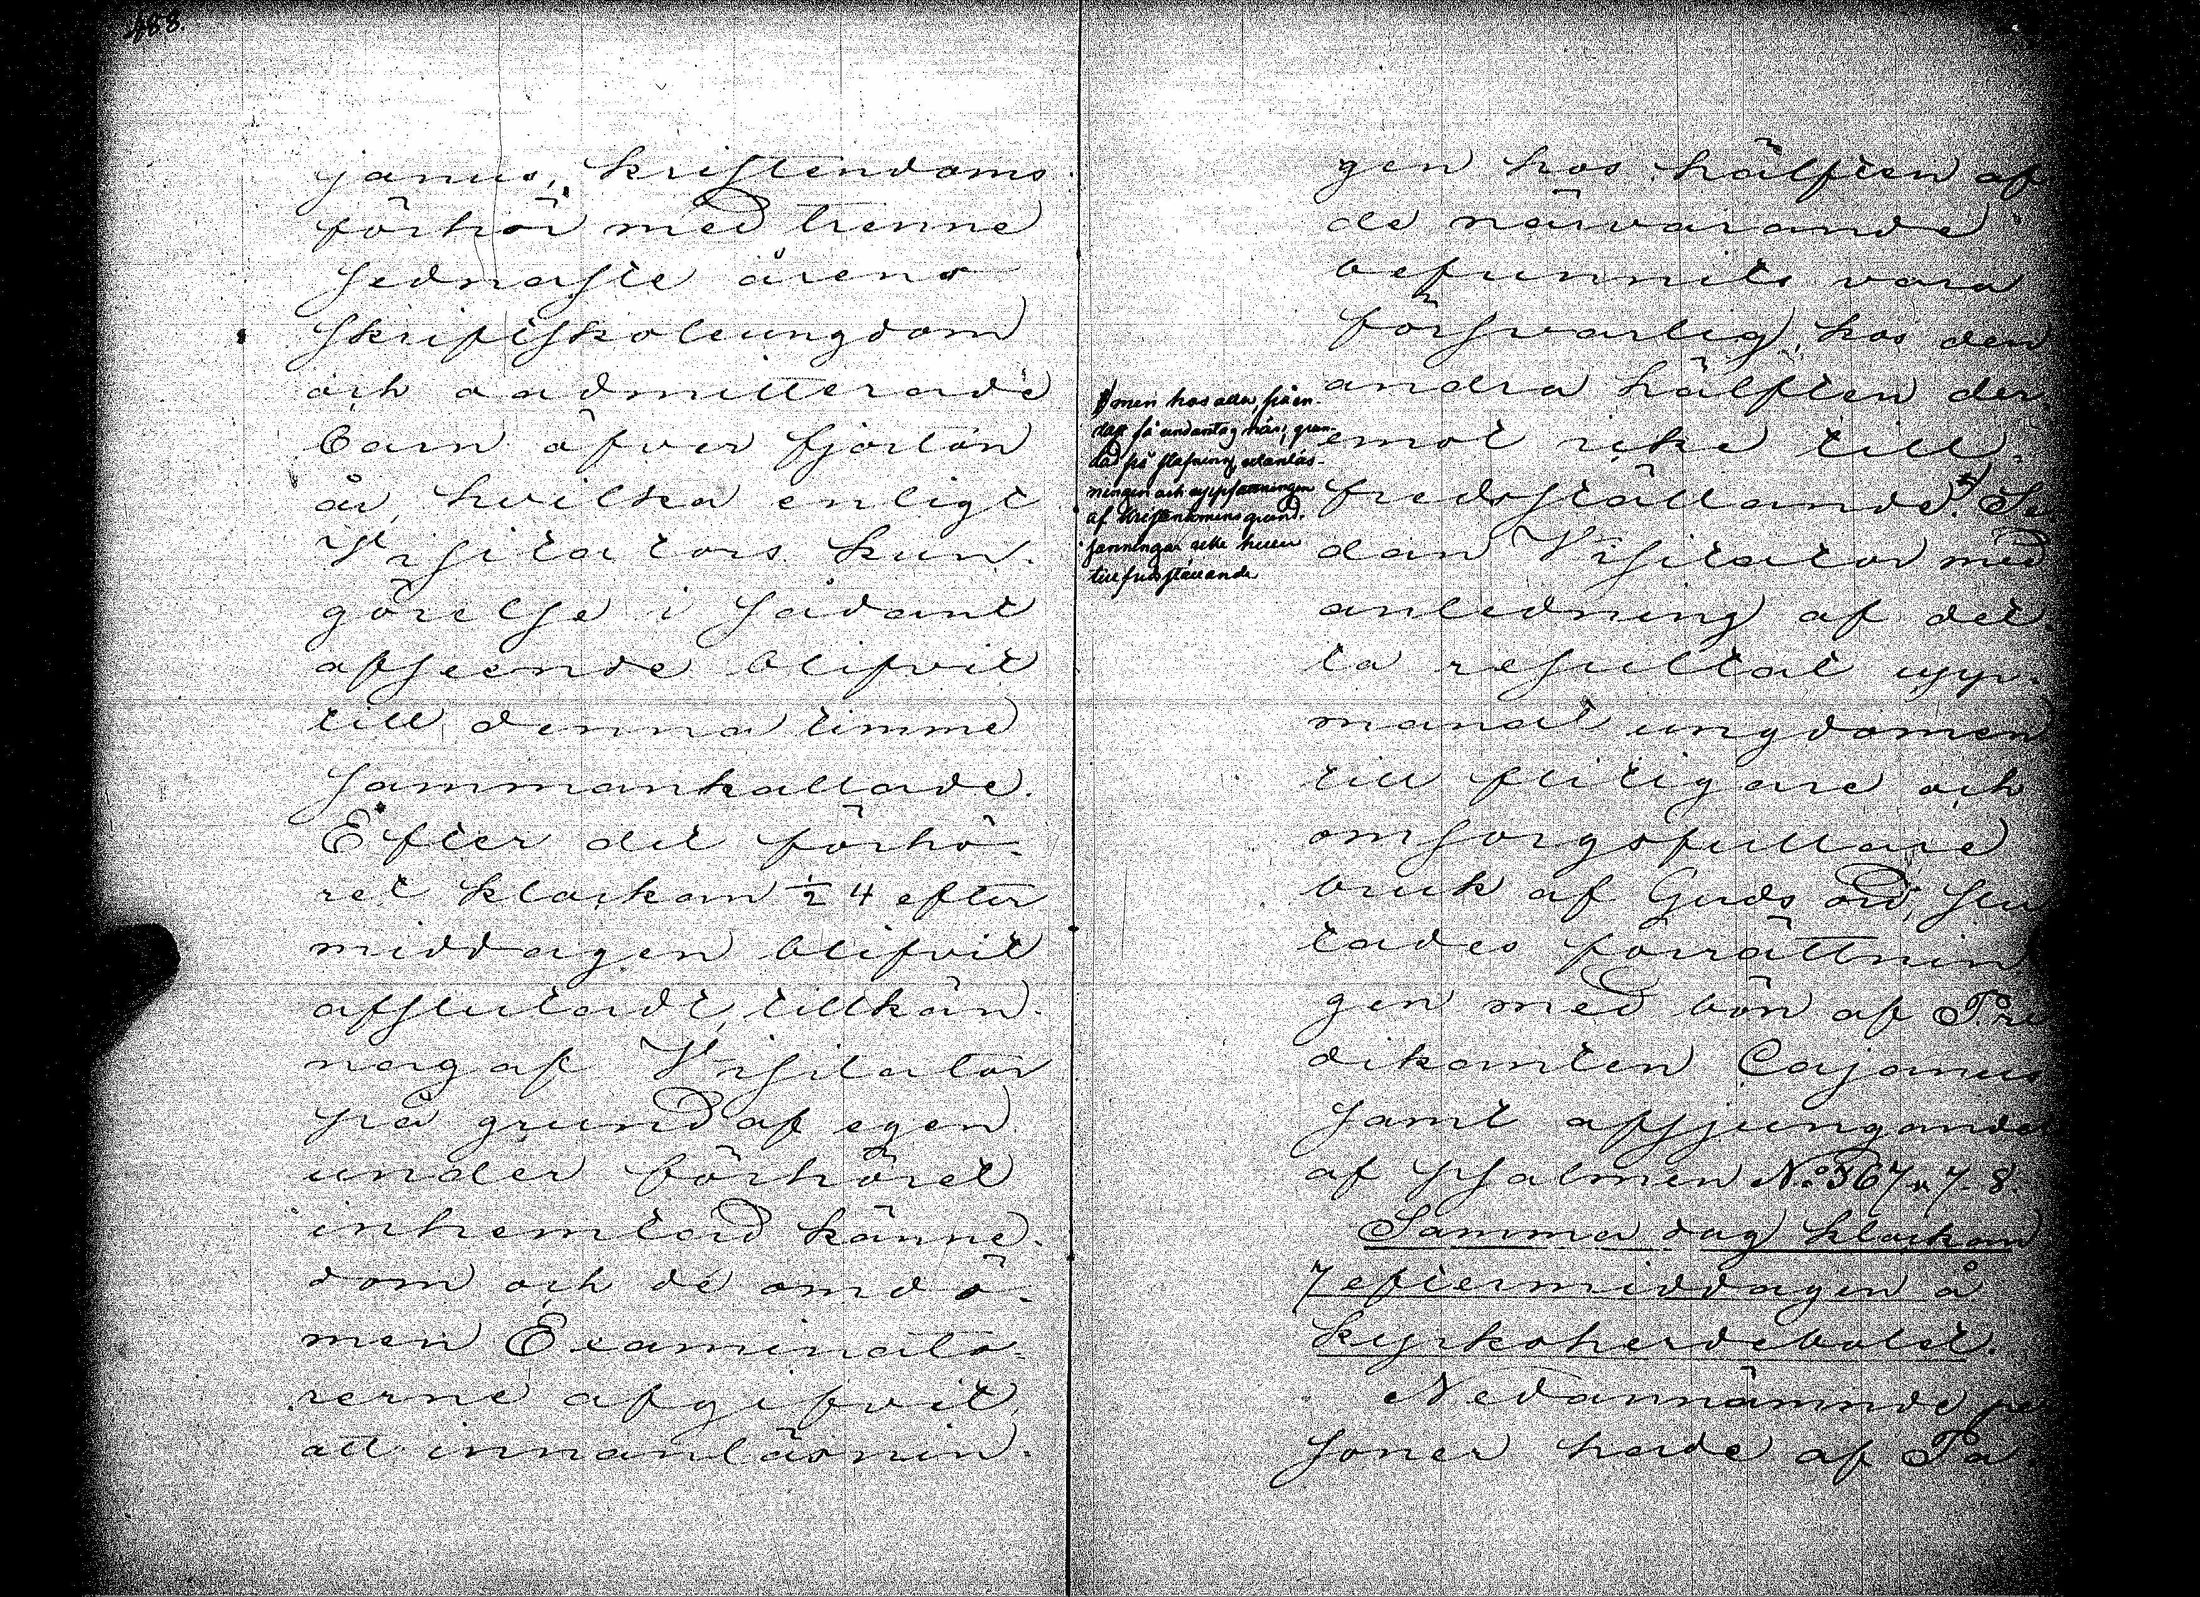 488.
janus, kristendoms
förhör med trenne
sednaste årens
skriftskoleungdom
och oadmitterade
barn öfver fjorton
år, hvilka enligt
Visitators kun-
görelse i sådant
afseende blifvit
till denna timme
sammankallade.
Efter det förhö-
ret klockan ½ 4 efter
middagen blifvit
afslutadt, tillkän-
nagaf Visitator
på grund af egen
under förhöret
inhemtad känne-
dom och de omdö-
men Examinato-
rerne afgifvit,
att innanläsnin-
gen hos hälften af
de närvarande
befunnits vara
försvarlig, hos den
andra hälften der-
emot icke till-
fredsställande. Se
dan Visitator med
anledning af det-
ta resultat upp-
manat ungdomen
till flitigare och
omsorgsfullare
bruk af Guds ord, slu
tades förrättnin
gen med bön af Pre
dikanten Cajanus
samt afsjungande
af psalmen No 367 v. 7-8.
Samma dag klockan
7 eftermiddagen å
kyrkoherdebolet.
Nedannämnde pe
soner hade af Pa
men hos alla, på en-
dast få undantag när, grun-
dad på stafning, utanläs-
ningen och uppfattningen
af kristendomens grund-
sanningar icke heller
tillfredsställande